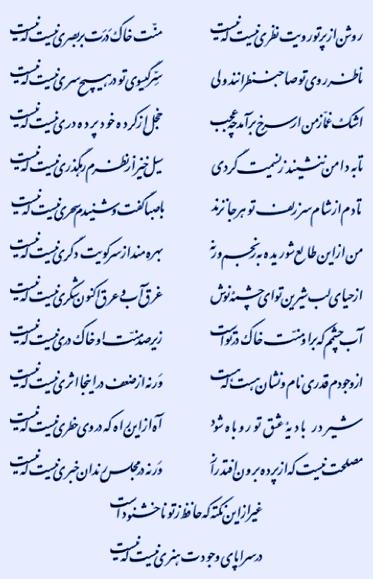 روشن از پرتو رویت نظری نیست که نیست
منّت خاک درت بر بصری نیست که نیست
ناظر روی تو صاحب نظرانند ولی
سرّ گیسوی تو در هیچ سری نیست که نیست
اشک غمّاز من ار سرخ برآمد چه عجب
خجل از کرده خود پرده دری نیست که نیست
تا به دامن ننشیند ز نسیمت گردی
سیل خیز از نظرم رهگذری نیست که نیست
تا دم از شام سر زلف تو هر جا نزند
با صبا گفت و شنیدم سحری نیست که نیست
من از این طالع شوریده به رنجم ور نه
بهره مند از سر کویت دگری نیست که نیست
از حیای لب شیرین تو ای چشمه نوش
غرق آب و عرق اکنون شکری نیست که نیست
آب چشمم که بر او منّت خاک در توست
زیر صد منّت او خاک دری نیست که نیست
از وجودم قدری نام و نشان هست که هست
ور نه از ضعف در اینجا اثری نیست که نیست
شیر در بادیه عشق تو روباه شود
آه از این راه که در وی خطری نیست که نیست
مصلحت نیست که از پرده برون افتد راز
ور نه در مجلس رندان خبری نیست که نیست
غیر از این نکته که حافظ ز تو ناخشنود است
در سراپای وجودت هنری نیست که نیست